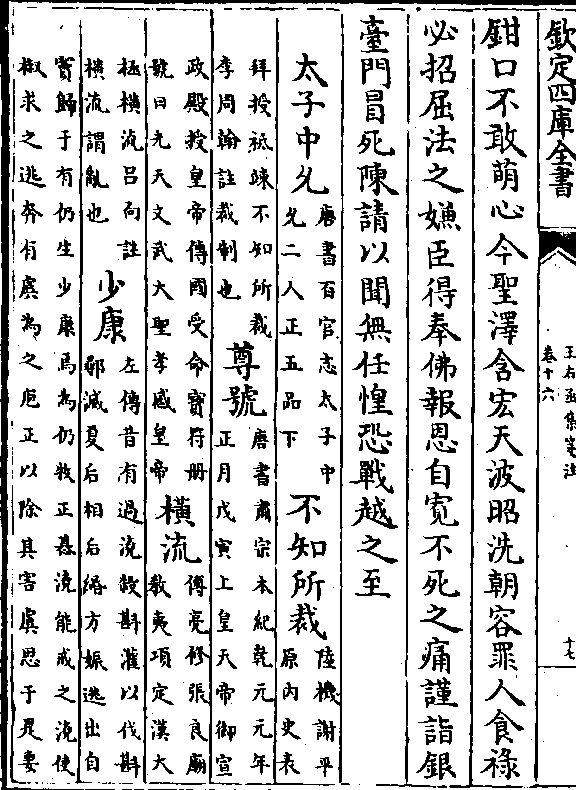 欽定四庫全書
王右丞集箋注
卷十六
十七
鉗口不敢萌心今聖澤含宏天波昭洗朝容罪人食祿
必招屈法之嫌臣得奉佛報恩自寛不死之痛謹詣銀
臺門冒死陳請以聞無任惶恐戰越之至
太子中允
唐書百官志太子中
允二人正五品下
不知所裁
陸機謝平
原内史表
拜授祗竦不知所裁
李周翰註裁制也
尊號
唐書肅宗本紀乾元元年
正月戊寅上皇天帝御宣
政殿授皇帝傳國受命寶符冊
號曰光天文武大聖孝感皇帝
橫流
傅亮修張良廟
教夷項定漢大
拯橫流吕向註
橫流謂亂也
少康
左傳昔有過澆殺斟灌以伐斟
鄩滅夏后相后緡方娠逃出自
竇歸于有仍生少康焉為仍牧正惎澆能戒之澆使
椒求之逃奔有虞為之庖正以除其害虞思于是妻